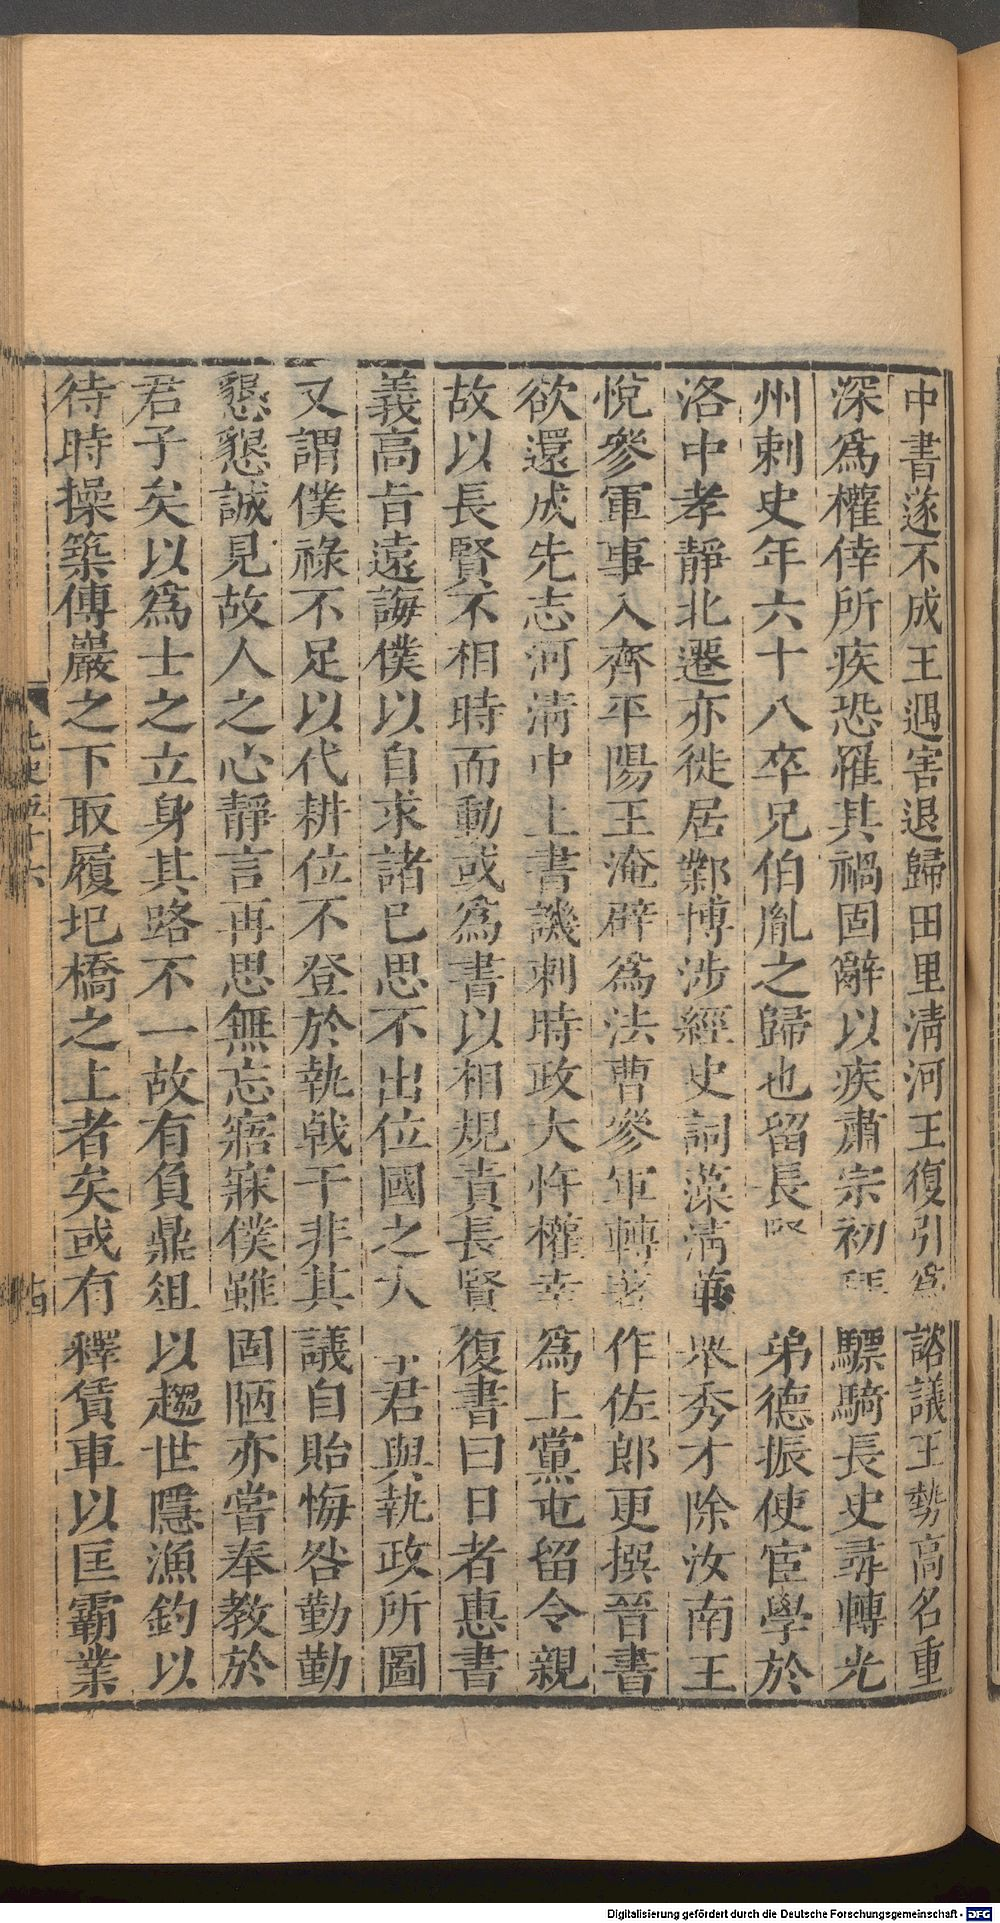 中書遂不成王遇害退歸田里清河王復引爲諮議王勢高名重
深爲權倖所疾恐罹其禍固辭以疾肅宗初拜驃騎長史尋轉光
州刺史年六十八卒兄伯胤之歸也留長賢弟德振使宦學於
洛中孝靜北遷亦徙居鄴博涉經史詞藻清華舉秀才除汝南王
悅參軍事入齊平陽王淹辟爲法曹參軍轉著作佐郎更撰晉書
欲還成先志河清中上書譏刺時政大忤權幸爲上黨屯留令親
故以長賢不相時而動或爲書以相規責長賢復書曰日者惠書
義高旨遠誨僕以自求諸已思不出位國之大事君與執政所圖
又謂僕祿不足以代耕位不登於執戟干非其議自貽悔咎勤勤
懇懇誠見故人之心靜言再思無忘寤寐僕雖固陋亦嘗奉教於
君子矣以爲士之立身其路不一故有負鼎俎以趨世隱漁釣以
待時操築傅巖之下取履圯橋之上者矣或有釋賃車以匡霸業
北史五十六
Digitalisierung gefördert durch die Deutsche Forschungsgemeinschaft - DFG